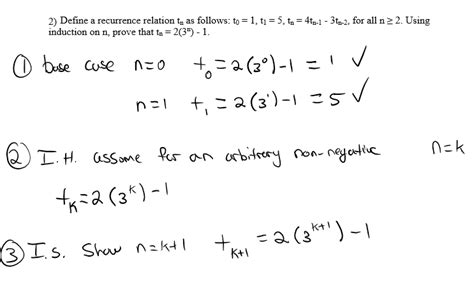 2) Define a recurrence relation tₙ as follows: t₀ = 1, t₁ = 5, tₙ = 4tₙ₋₁ - 3tₙ₋₂, for all n ≥ 2. Using
induction on n, prove that tₙ = 2(3ⁿ) - 1.
① base case n=0 t₀ = 2(3⁰)-1 = 1 ✓
n=1 t₁ = 2(3¹)-1 = 5 ✓
② I.H. assume for an arbitrary non-negative n=k
tₖ = 2(3ᵏ)-1
③ I.S. Show n=k+1 tₖ₊₁ = 2(3ᵏ⁺¹)-1